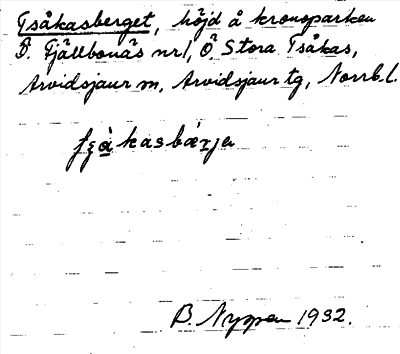 Tsåkasberget, höjd å kronoparken
Ö. Fjällbonäs nr 1, Ö. Stora Tsåkas,
Arvidsjaur sn, Arvidsjaur tg, Norrb. l.
B. Nyman 1932.